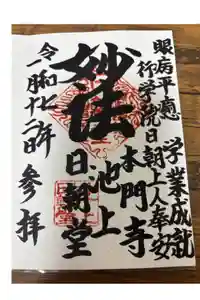 眼病平癒 学業成就
行学院日朝上人奉安
本門寺
池上
妙法
日朝堂
令和
参拝